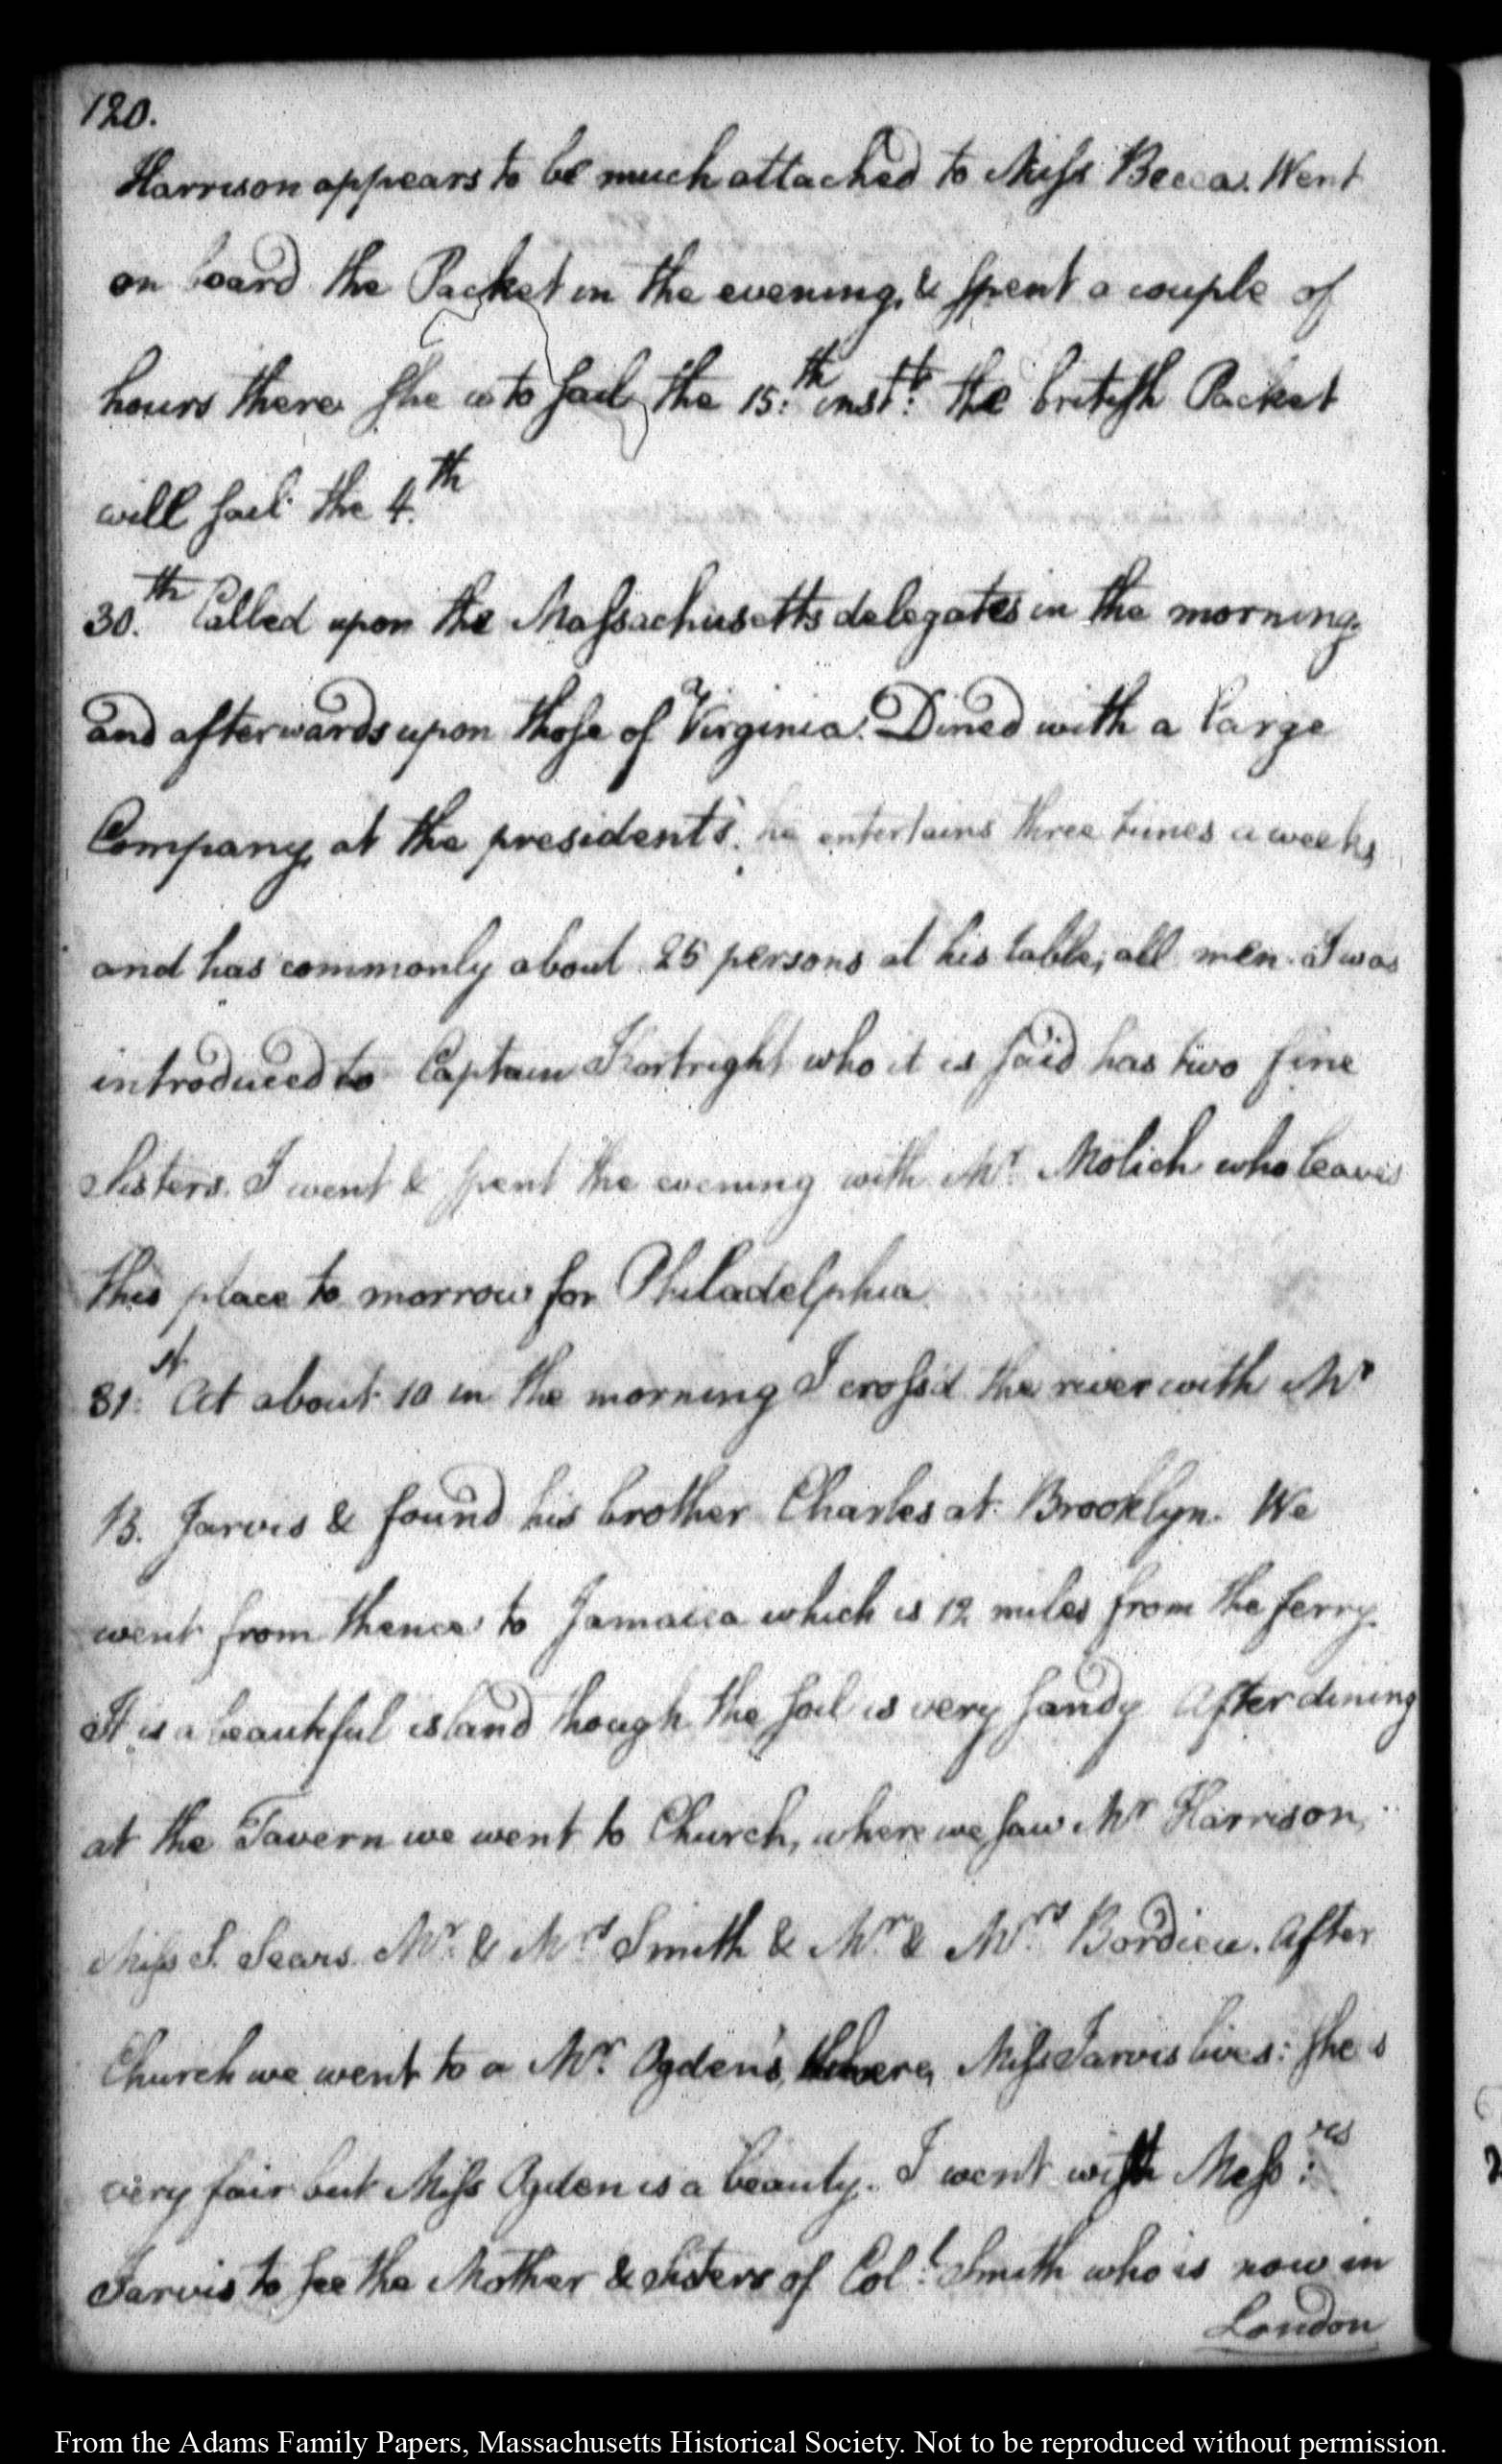 120.
Harrison appears to be much attached to Miss Becca. Went
on board the Packet in the evening, & spent a couple of
hours there she is to sail the 15:th inst:t the british Packet
will sail the 4.th
30.th Called upon the Massachusetts delegates in the morning,
and afterwards upon those of Virginia. Dined with a large
Company, at the president's. he entertains three times a week,
and has commonly about 25 persons at his table; all men. I was
introduced to Captain Kortright who it is said has two fine
Sisters. I went & spent the evening with Mr. Molich who leaves
this place to morrow for Philadelphia.
31:st At about 10 in the morning I cross'd the river with Mr
B. Jarvis & found his brother Charles at Brooklyn. We
went from thence to Jamaica which is 12 miles from the ferry.
It is a beautiful island though the soil is very sandy After dining
at the Tavern we went to Church, where we saw Mr Harrison,
Miss S. Sears. Mr. & Mrs Smith & Mr. & Mrs. Bordieu. After
Church we went to a Mr. Ogden's, where, Miss Jarvis lives: she is
very fair but Miss Ogden is a beauty. I went with Mess:rs
Jarvis to see the Mother & Sisters of Col:l Smith who is now in
London
From the Adams Family Papers, Massachusetts Historical Society. Not to be reproduced without permission.